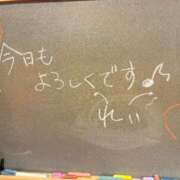 今日も
よろしくです♪
れい